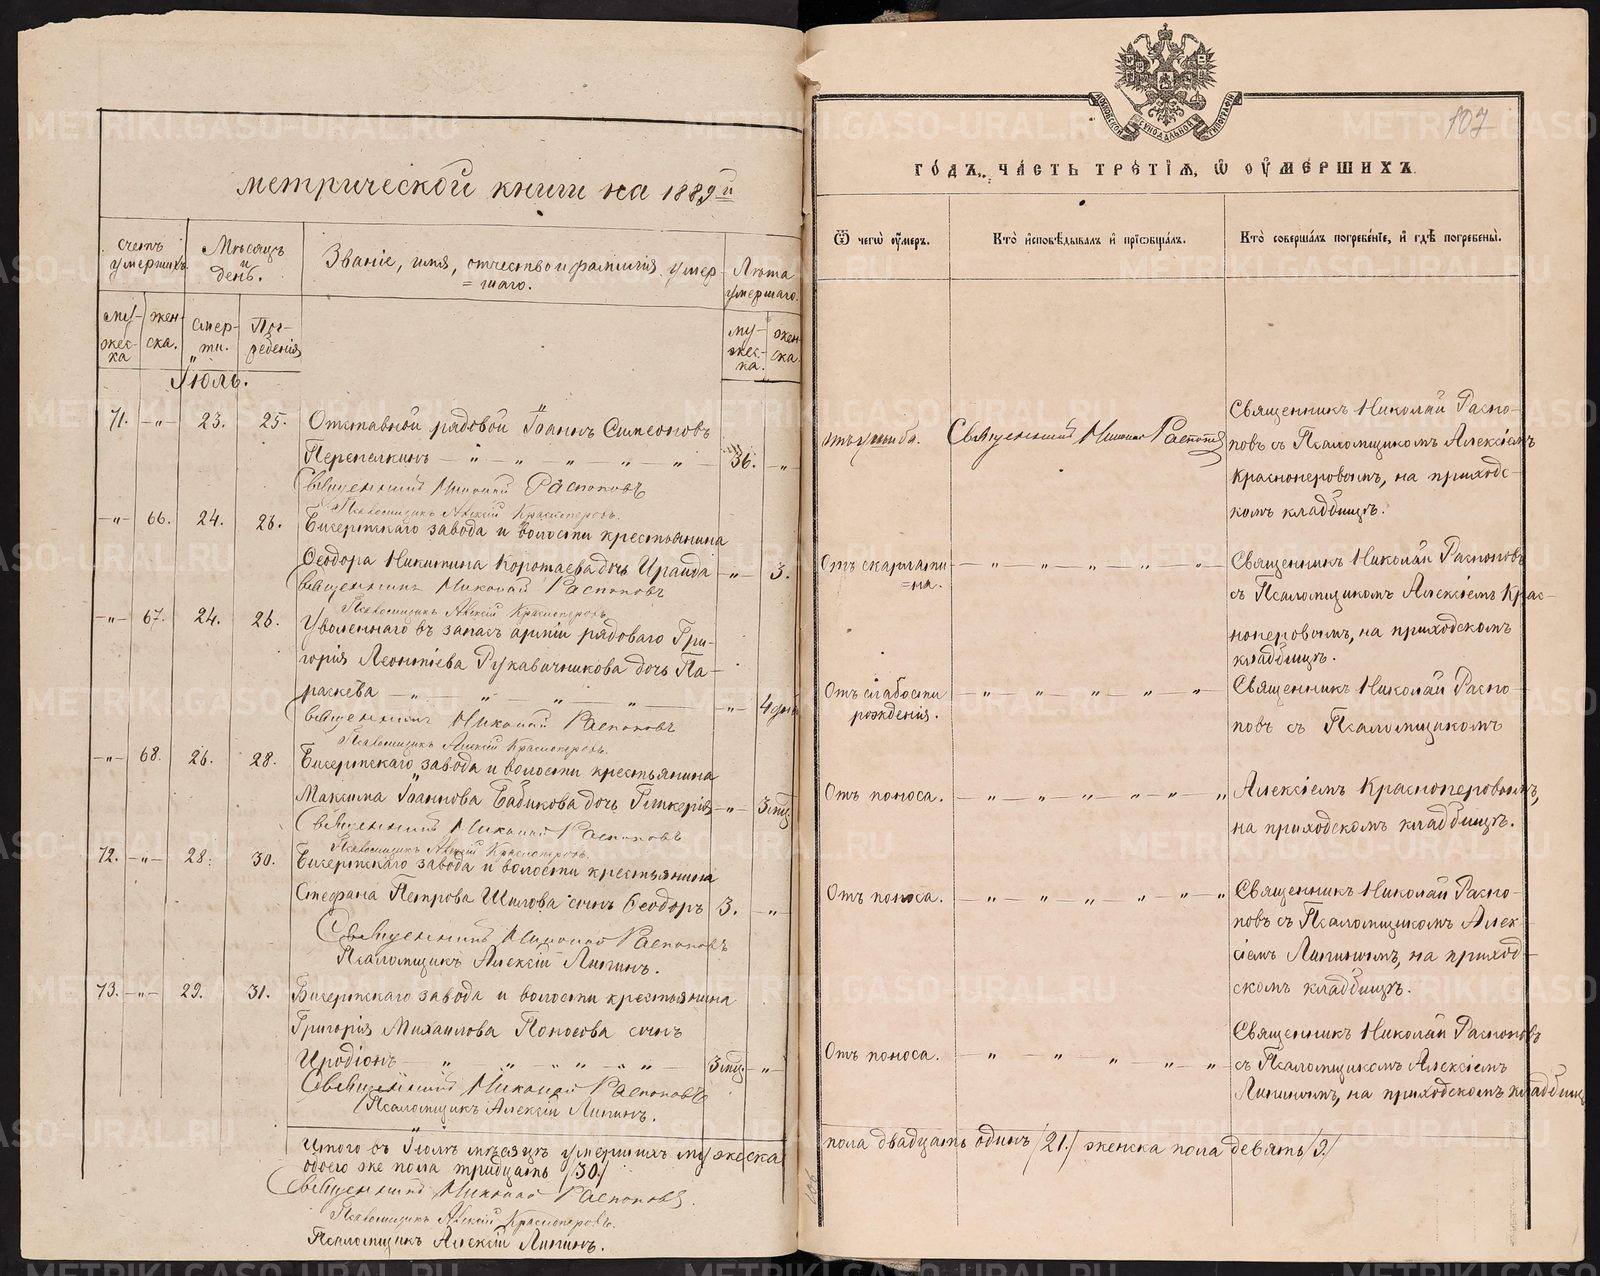 метрической книги на 1889й
счетъ
умершихъ
Мѣсяцъ
и
день.
Званіе, имя, отчество и фамилія умер
=шаго.
Лѣта
умершаго.
му-
жес-
ка
жен-
ска.
Смер-
ти.
Пог-
ребенія
му-
жес-
ка.
жен
ска.
Іюль.
71. -„- 23. 25. Отставной рядовой Іоаннъ Симеоновъ
Перепелкинъ — „ — „ „ — „ — „ — 36. -„
Священникъ Николай Распоповъ
Псаломщикъ Алексій Красноперовъ.
-„- 66. 24. 26. Бисертскаго завода и волости крестьянина
Ѳеодора Никитина Коротаева дочь Ираида -„- 3.
Священникъ Николай Распоповъ
Псаломщикъ Алексій Красноперовъ
-„- 67. 24. 26. Уволеннаго въ запасъ арміи рядоваго Гри-
горія Леонтіева Рукавичникова дочь Па-
раскева — „ — „ — „ — „ — -„- 4 дня
Священникъ Николай Распоповъ
Псаломщикъ Алексій Красноперовъ.
-„- 68. 26. 28. Бисертскаго завода и волости крестьянина
Максима Іоаннова Бабикова дочь Гликерія -„- 3 мѣс.
Священникъ Николай Распоповъ
Псаломщикъ Алексій Красноперовъ.
72. -„- 28. 30. Бисертскаго завода и волости крестьянина
Стефана Петрова Шилова сынъ Ѳеодоръ 3. -„-
Священникъ Николай Распоповъ
Псаломщикъ Алексій Липинъ.
73. -„- 29. 31. Бисертскаго завода и волости крестьянина
Григорія Михаилова Поносова сынъ
Иродіонъ — „ „ — „ „ „ — 3 мѣс. -„
Священникъ Николай Распоповъ
Псаломщикъ Алексій Липинъ.
Итого въ Іюлѣ мѣсяцѣ умершихъ мужеска
обоего же пола тридцать /30/
Священникъ Николай Распоповъ.
Псаломщикъ Алексій Красноперовъ.
Псаломщикъ Алексій Липинъ.
МОСКОВСКОЙ СѴНОДАЛЬНОЙ ТИПОГРАФІИ
107
ГО́ДЪ, ЧА́СТЬ ТРЕ́ТІѦ, Ѽ ОУ҆МЕ́РШИХЪ.
Ѿ чегѡ̀ ᲂу҆́меръ.
Кто̀ и҆сповѣ́дывалъ и҆ прїѻбща́лъ.
Кто̀ соверша́лъ погребе́нїе, и҆ гдѣ̀ погребены̀.
отъ ушиба. Священникъ Николай Распоповъ
Священникъ Николай Распо-
повъ съ Псаломщикомъ Алексіемъ
Красноперовымъ, на приходс-
комъ кладбищѣ.
Отъ скарлати
=на. — „ — „ — „ — „ — „
Священникъ Николай Распоповъ
съ Псаломщикомъ Алексіемъ Крас-
ноперовымъ, на приходскомъ
кладбищѣ.
Отъ слабости
рожденія. — „ — „ — „ — „ — „
Священникъ Николай Распо-
повъ съ Псаломщикомъ
Отъ поноса. — „ — „ — „ — „ — „
Алексіемъ Красноперовымъ,
на приходскомъ кладбищѣ.
Отъ поноса. — „ — „ — „ — „ — „
Священникъ Николай Распо-
повъ съ Псаломщикомъ Алек-
сіемъ Липинымъ, на приход-
скомъ кладбищѣ.
Отъ поноса. — „ — „ — „ — „ — „
Священникъ Николай Распоповъ
съ Псаломщикомъ Алексіемъ
Липинымъ, на приходскомъ кладбищѣ
пола двадцать одинъ /21./ женска пола девять /9./
METRIKI.GASO-URAL.RU